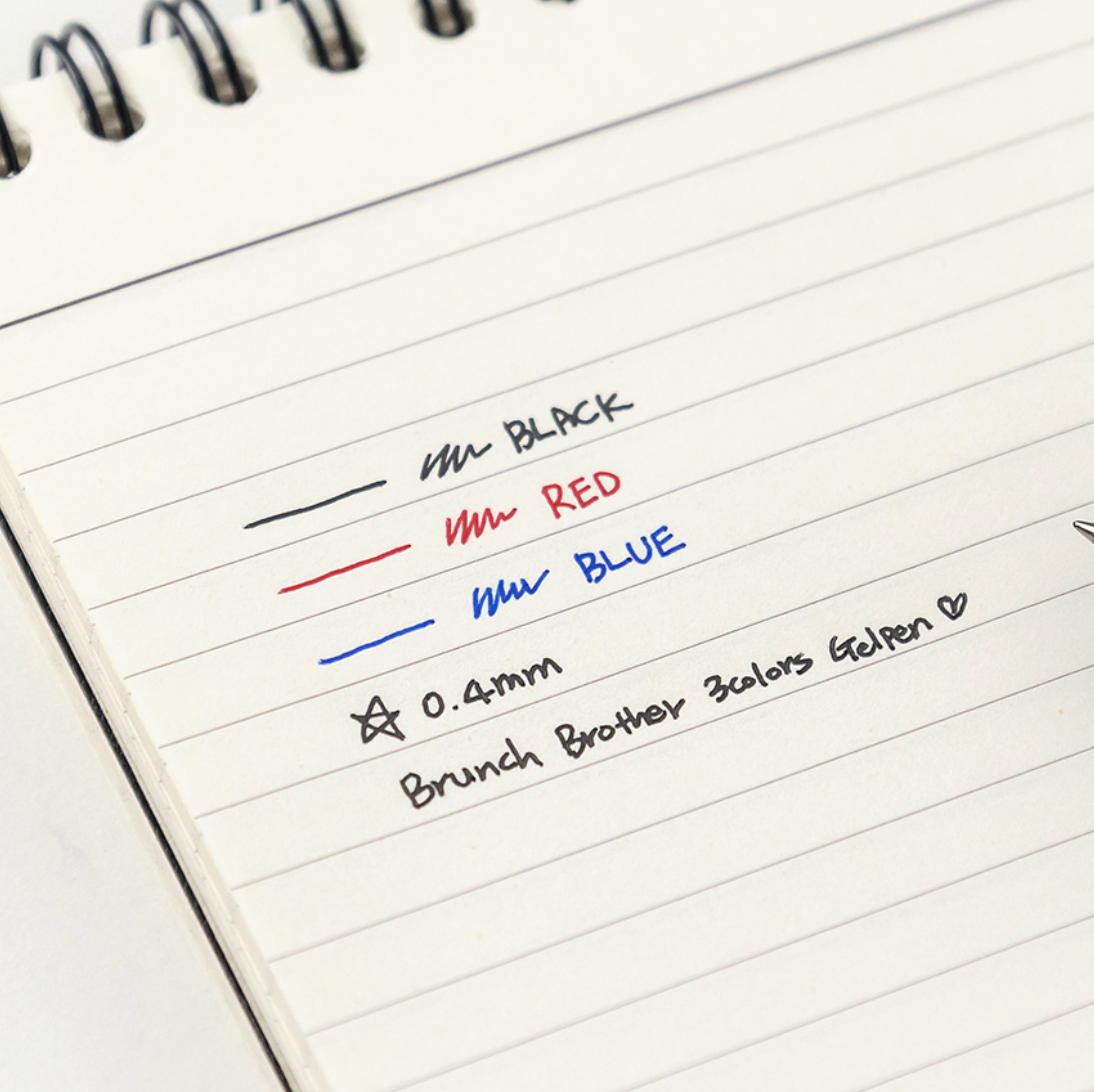 BLACK
RED
BLUE
☆ 0.4mm
Brunch Brother 3colors Gelpen ♡